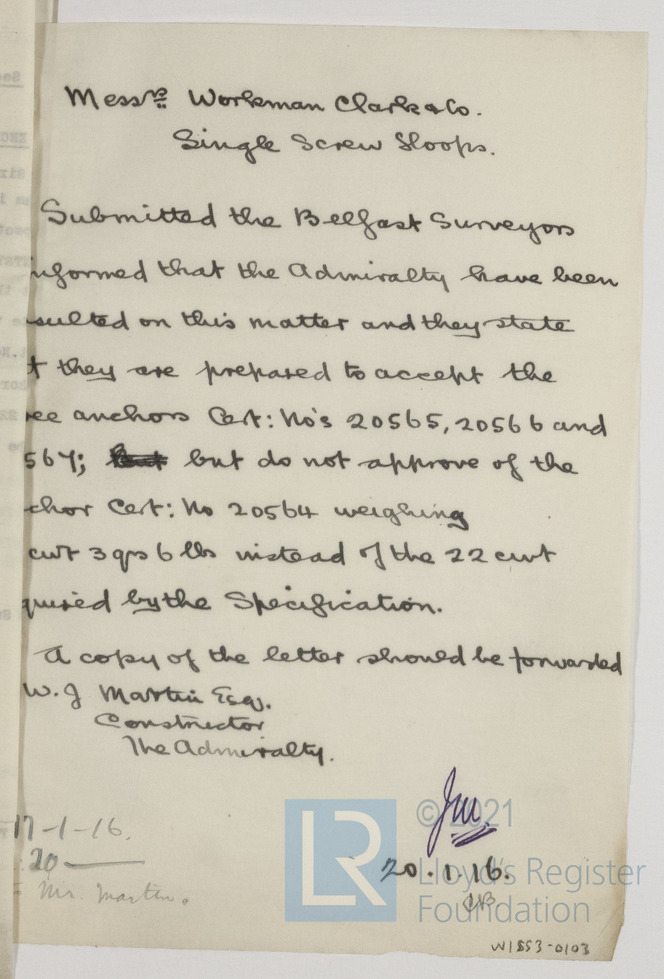 Messrs Workman Clark & Co.
Single Screw Sloops.
Submitted the Belfast Surveyors
nformed that the Admiralty have been
sulted on this matter and they state
t they are prepared to accept the
ree anchors Cert: No's 20565, 20566 and
567; but do not approve of the
chor Cert: No 20564 weighing
cwt 3 qrs 6 lbs instead of the 22 cwt
quired by the Specification.
A copy of the letter should be forwarded
W. J Martin Esq.
Constructor
The Admiralty.
17-1-16.
20
Mr. Martin.
JM.
20.1.16.
LR
© 2021
Lloyd's Register
Foundation
W1853-0103